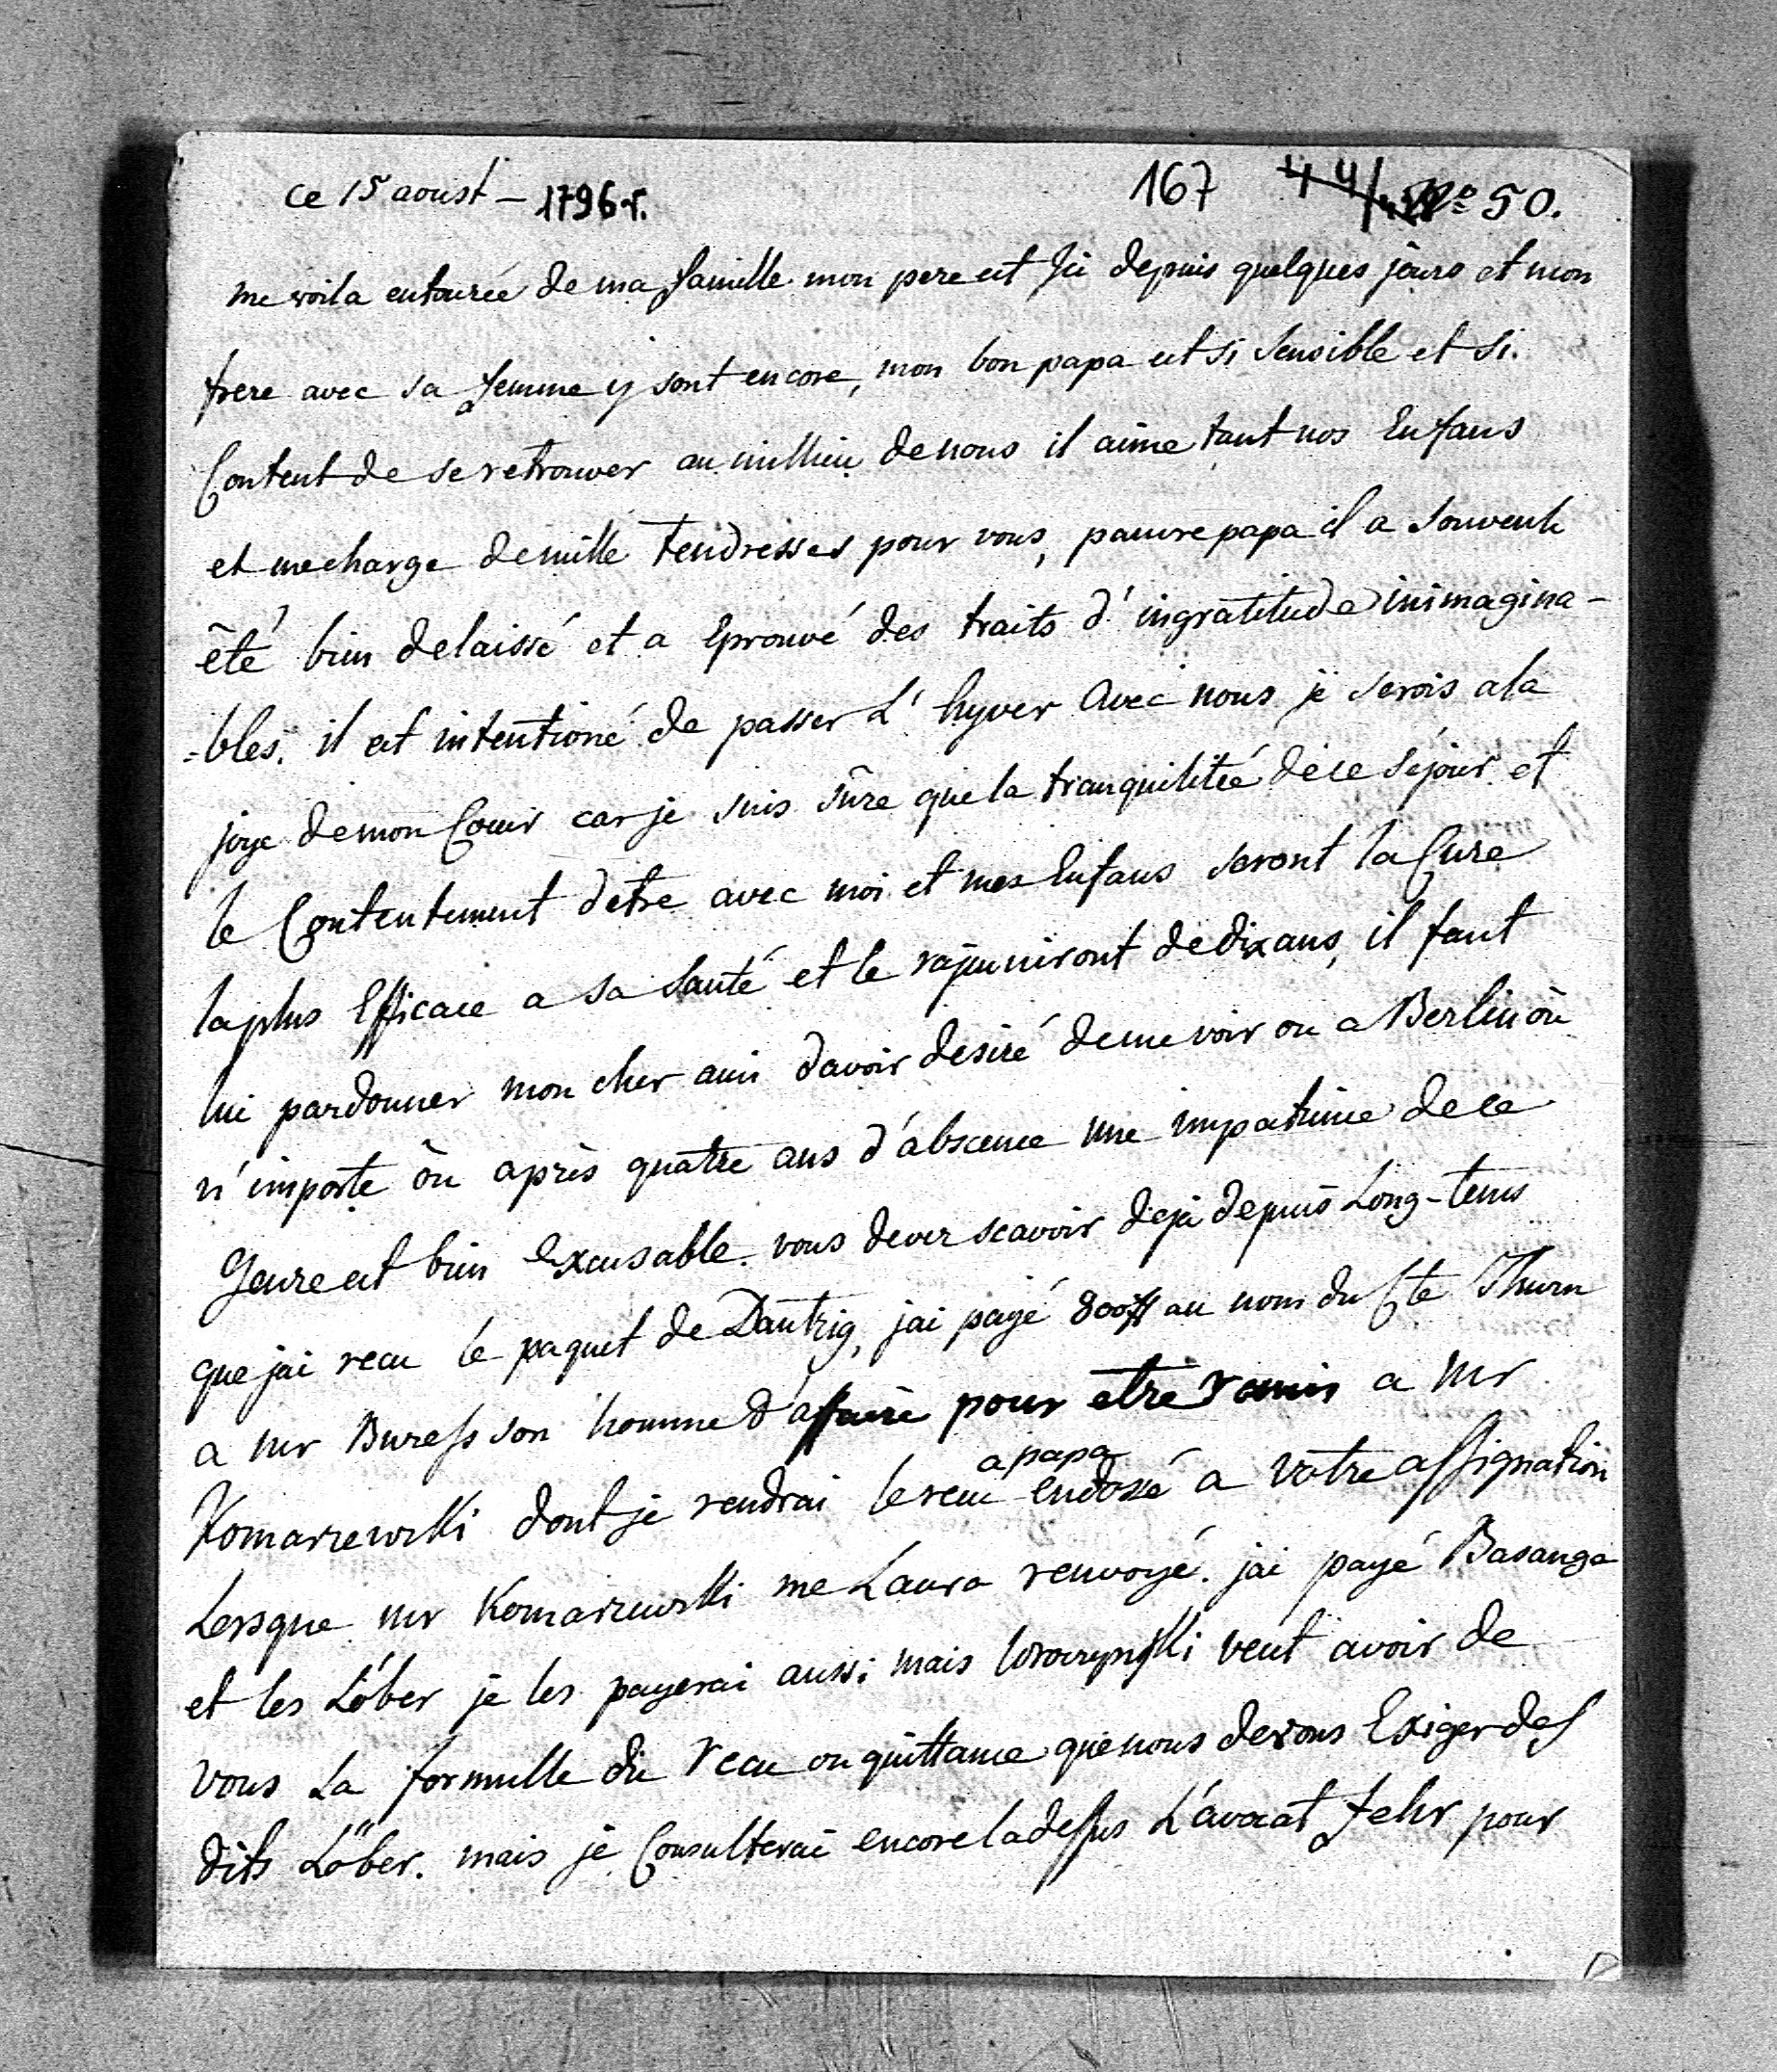 ce 15 aoust – 1796 r. 167 44/ No 50.
me voila entourée de ma famille mon pere est Ici depuis quelques jours et mon
frere avec sa femme y sont encore, mon bon papa est si sensible et si
Content de se retrouver au millieu de nous il aime tant nos Enfans
et me charge de mille tendresses pour vous, pauvre papa il a souvent
êté bien delaissé et a Eprouvé des traits d'ingratitude inimagina-
-bles. il est intentioné de passer L'hyver avec nous je serois a la
joye de mon Cœur car je suis sûre que la tranquilitée de ce séjour et
le Contentement d'etre avec moi et mes Enfans seront la Cure
la plus Efficace a sa santé et le rajeuniront de dix ans, il faut
lui pardonner mon cher ami d'avoir désiré de me voir ou a Berlin où
n'importe où après quatre ans d'abscence une impatience de ce
genre est bien Excusable. vous devez scavoir deja depuis Long-tems
que jai recu le paquet de Dantzig, jai payé 800# au nom du Cte Thurn
a mr Buress son homme d'affaire pour etre remis a Mr
Komarzewski dont je rendrai le recu a papa endossé a votre assignation
Lorsque mr Komarzewski me Laura renvoyé. jai payé Basange
et les Löber je les payerai aussi mais veut avoir de
vous La formulle du recu ou quittance que nous devons Exiger des
dits Löber. mais je Consulterai encore la dessus L'avocat Fehr pour